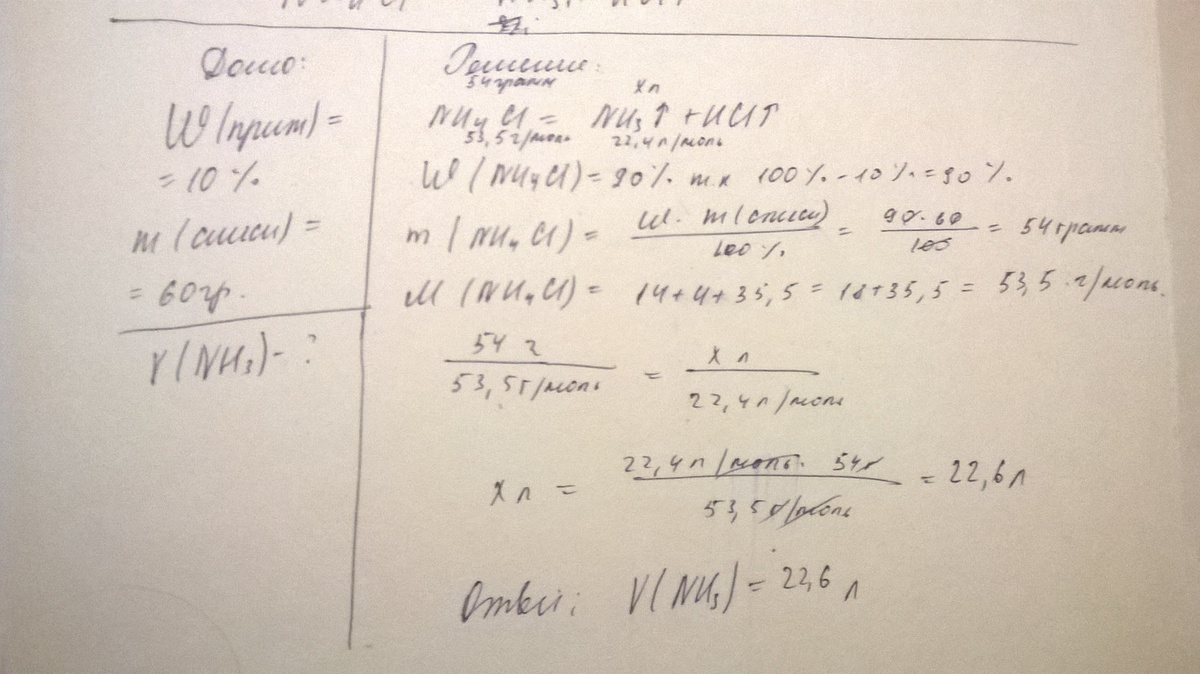 Дано:
W(прим) =
= 10 %.
m (смеси) =
= 60гр.
V(NH₃)- ?
Решение:
54 грамм
x л
NH₄Cl = NH₃↑ + HCl↑
53,5 г/моль 22,4 л/моль
W (NH₄Cl) = 90 % т к 100 % - 10 % = 90 %.
m (NH₄Cl) = W · m (смеси) / 100 % = 90 · 60 / 100 = 54 грамм
M (NH₄Cl) = 14+4+35,5 = 18+35,5 = 53,5 г/моль.
54 г / 53,5 г/моль = x л / 22,4 л/моль
x л = 22,4 л/моль · 54 г / 53,5 г/моль = 22,6 л
Ответ: V(NH₃) = 22,6 л